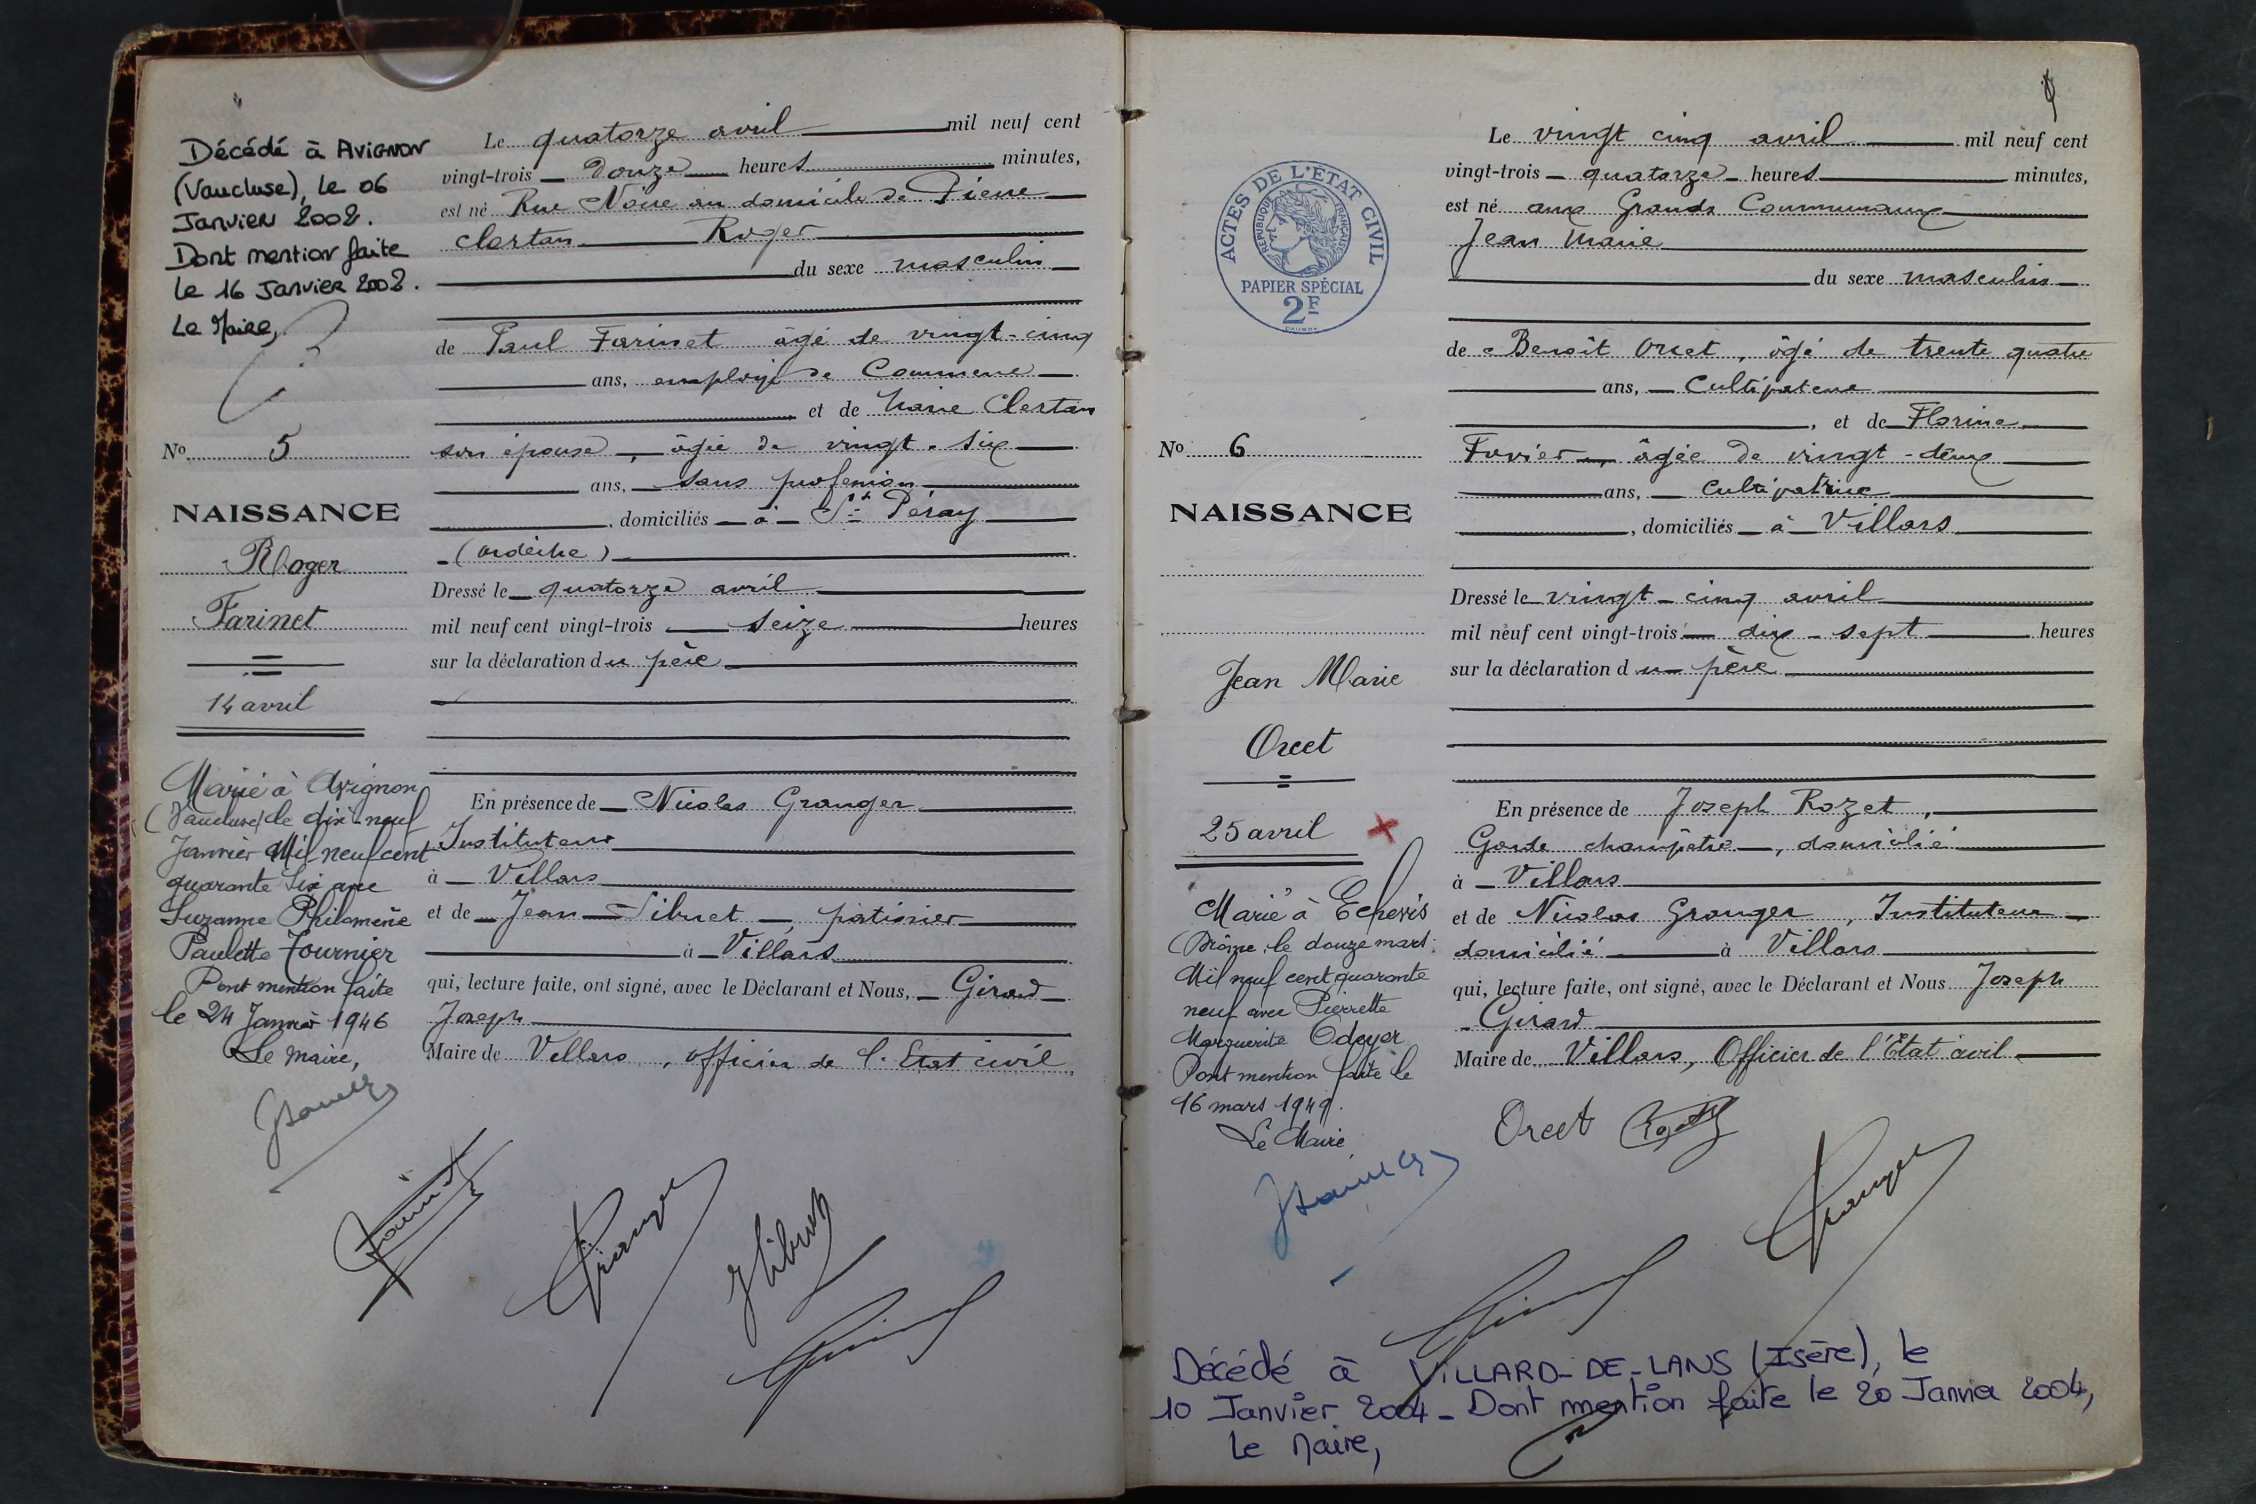 Décédé à Avignon
(Vaucluse), le 06
Janvier 2002.
Dont mention faite
le 16 Janvier 2002.
Le Maire,
No 5
NAISSANCE
Roger
Farinet
14 avril
Marié à Avignon
(Vaucluse) le dix-neuf
Janvier Mil neuf cent
quarante six avec
Suzanne Philomène
Paulette Fournier
Dont mention faite
le 24 Janvier 1946
Le Maire,
Le quatorze avril mil neuf cent
vingt-trois douze heures minutes,
est né Rue Noire au domicile de Pierre
Clertan Roger
du sexe masculin
de Paul Farinet âgé de vingt-cinq
ans, employé de Commerce
et de Marie Clertan
son épouse, âgée de vingt-six
ans, sans profession
, domiciliés à St Péray
(Ardèche)
Dressé le quatorze avril
mil neuf cent vingt-trois seize heures
sur la déclaration du père
En présence de Nicolas Granger
Instituteur
à Villars
et de Jean Sibuet, pâtissier
à Villars
qui, lecture faite, ont signé, avec le Déclarant et Nous, Girard
Joseph
Maire de Villars, officier de l'Etat civil
Farinet
Granger
JSibuet
Girard
ACTES DE L'ETAT CIVIL
REPUBLIQUE FRANÇAISE
PAPIER SPÉCIAL
2F
No 6
NAISSANCE
Jean Marie
Orcet
25 avril
Marié à Echevis
(Drôme, le douze mars
Mil neuf cent quarante
neuf avec Pierrette
Marguerite Odeyer
Dont mention faite le
16 mars 1949.
Le Maire
Le vingt cinq avril mil neuf cent
vingt-trois quatorze heures minutes,
est né aux Grands Communaux
Jean Marie
du sexe masculin
de Benoît Orcet, âgé de trente quatre
ans, Cultivateur
, et de Florine
Fovier, âgée de vingt-deux
ans, Cultivatrice
, domiciliés à Villars
Dressé le vingt-cinq avril
mil neuf cent vingt-trois dix-sept heures
sur la déclaration du père
En présence de Joseph Rozet,
Garde champêtre, domicilié
à Villars
et de Nicolas Granger, Instituteur
domicilié à Villars
qui, lecture faite, ont signé, avec le Déclarant et Nous Joseph
Girard
Maire de Villars, Officier de l'État civil
Orcet Rozet
Granger
Girard
Décédé à VILLARD-DE-LANS (Isère), le
10 Janvier 2004 - Dont mention faite le 20 Janvier 2004,
Le Maire,